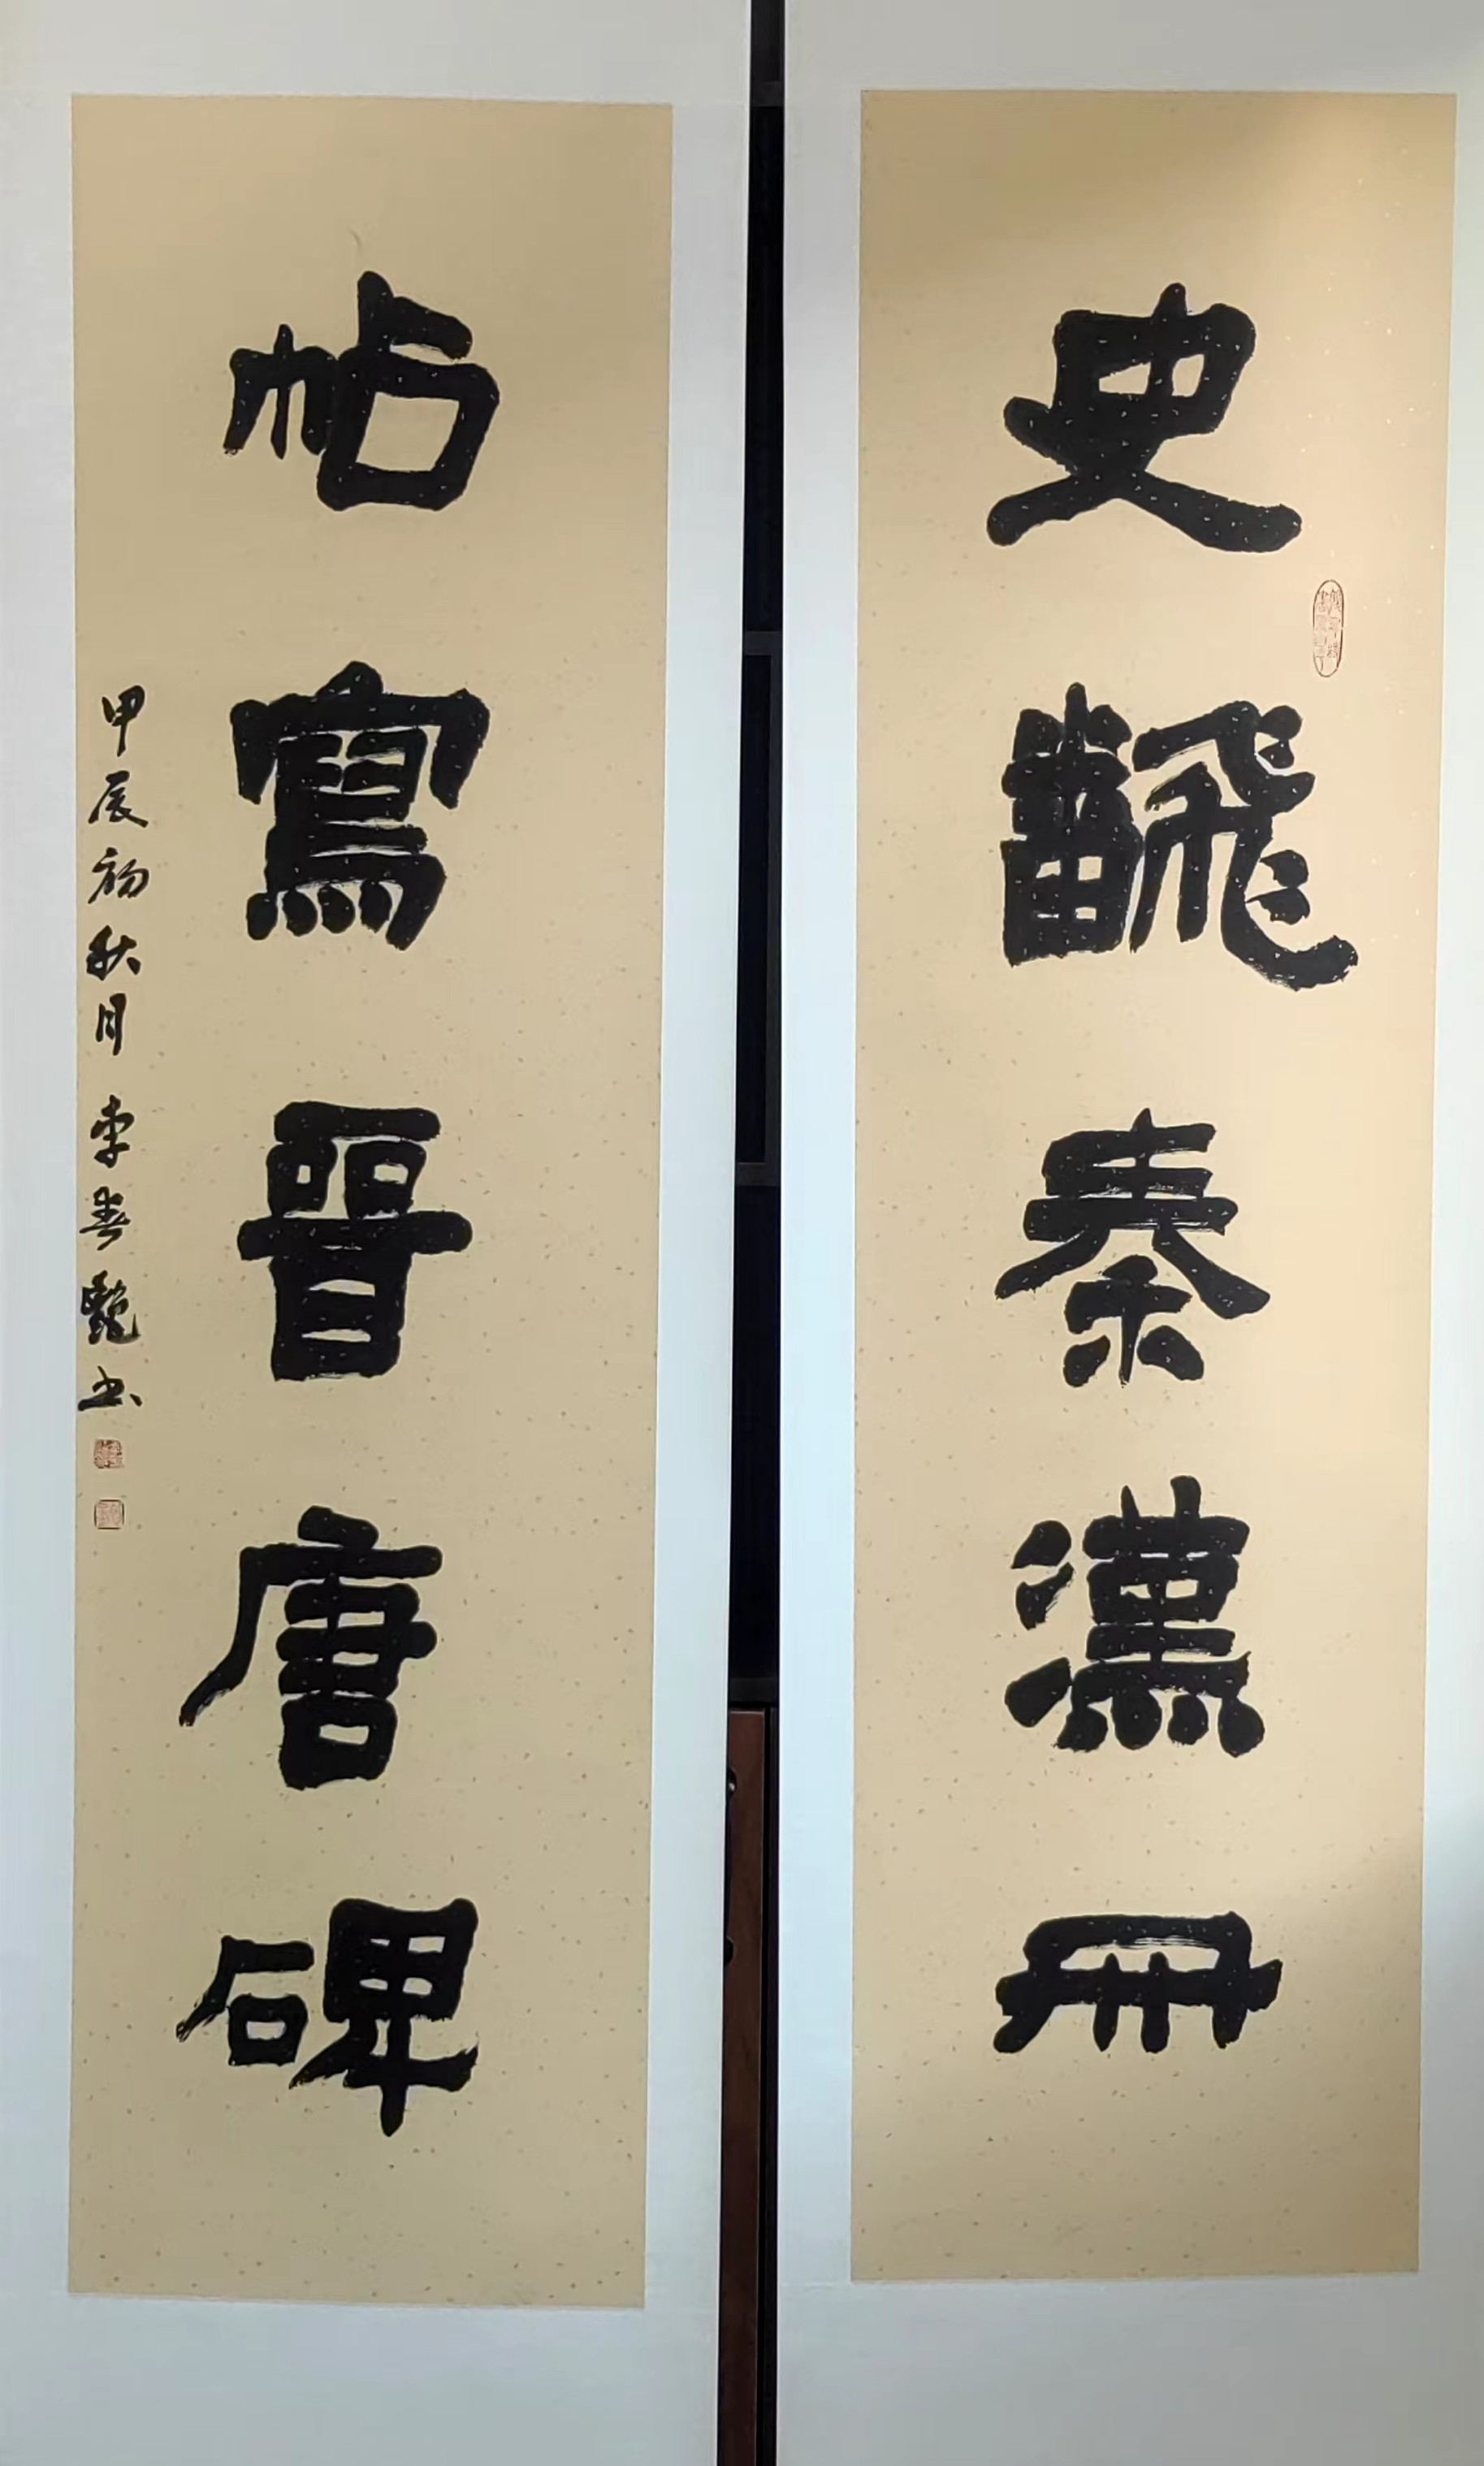 史飜秦漢冊
帖寫晉唐碑
甲辰初秋月李春艷书